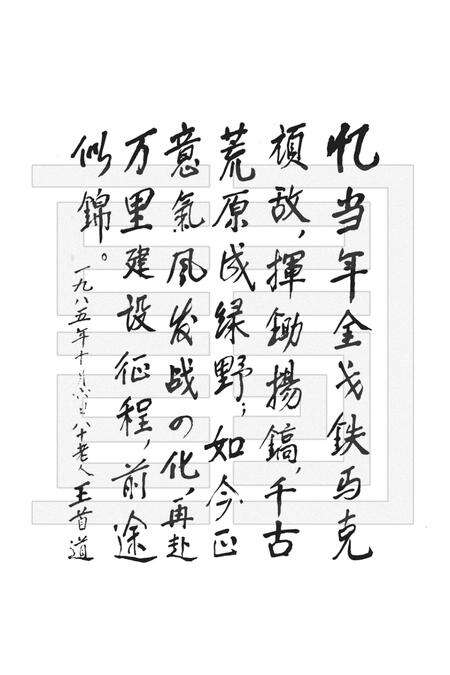 忆当年金戈鉄马克
頑敌，揮鋤揚鎬，千古
荒原成绿野；如今正
意氣风发战四化，再赴
万里建设征程，前途
似錦。
一九八五年十月 八十老人王首道